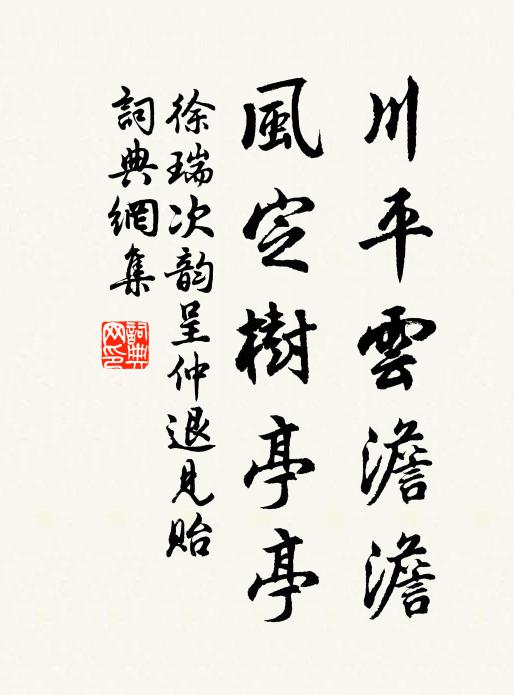 川平雲澹澹
風定樹亭亭
徐瑞次韵呈仲退見貽
詞典網集
詞典網印